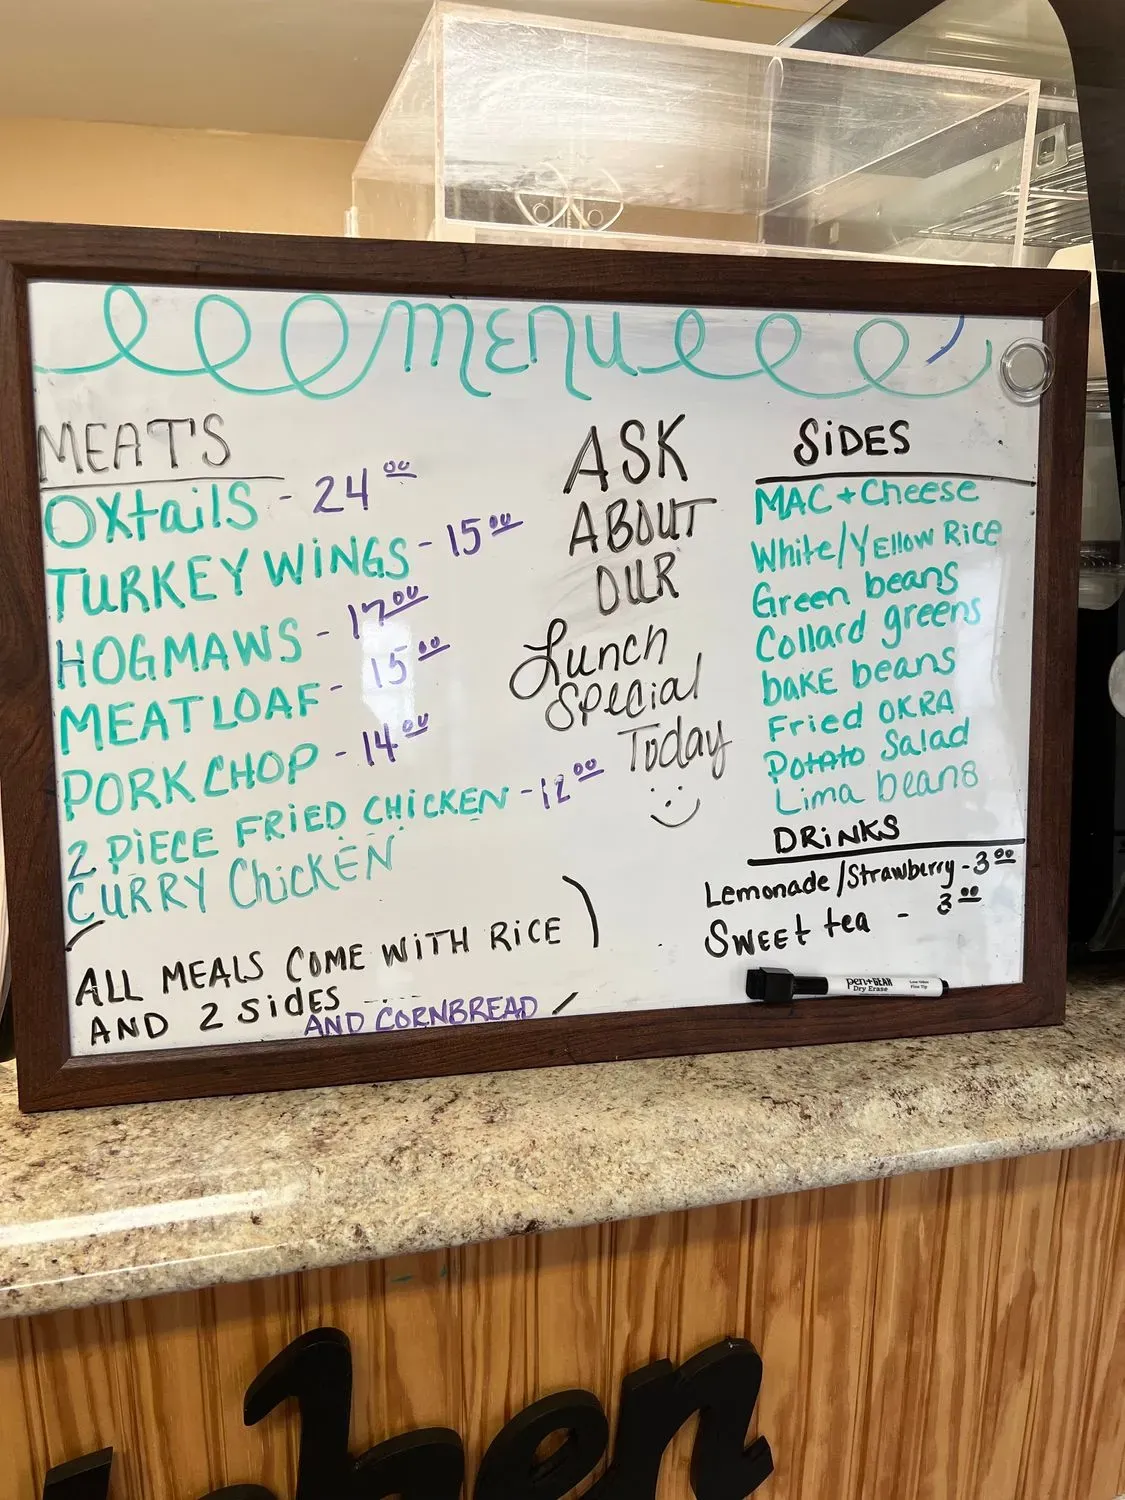 menu
MEATS
OXtails - 24 00
TURKEY WINGS - 15 00
HOGMAWS - 17 00
MEATLOAF - 15 00
PORK CHOP - 14 00
2 PIECE FRIED CHICKEN - 12 00
CURRY ChicKEN
(ALL MEALS COME WITH RICE)
AND 2 SidES
AND CORNBREAD
ASK
ABOUT
OUR
Lunch
Special
Today
SiDES
MAC + Cheese
White/YEllow Rice
Green beans
Collard greens
baKE beans
Fried OKRA
Potato Salad
Lima beans
DRiNKS
Lemonade/Strawberry - 3 00
SWEEt tea - 3 00
pen+GEAR
Dry Erase
Low Odor
Fine Tip